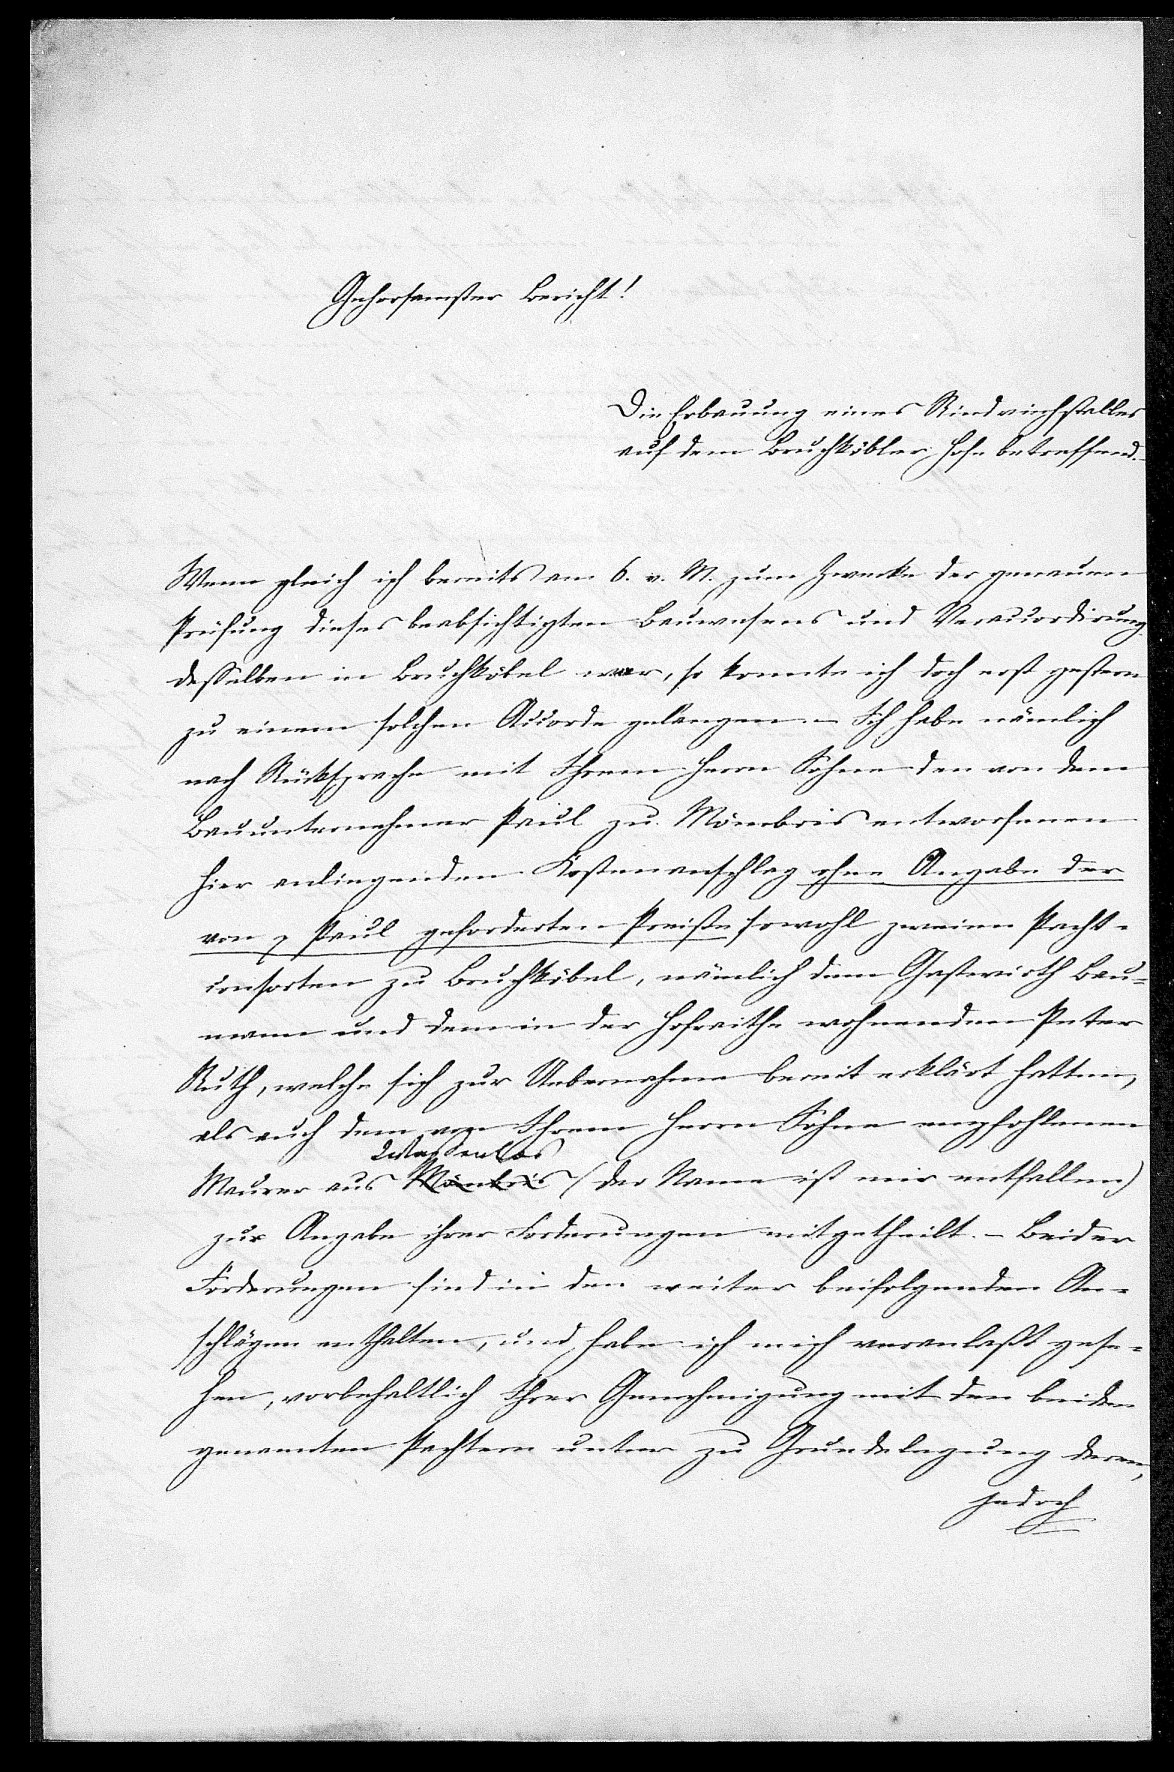 Gehorsamster Bericht!
Die Erbauung eines Rindviehstalles
auf dem Bruchköbler Hofe betreffend.
Wenn gleich ich bereits am 6. v. M. zum Zwecke der genauen
Prüfung dieses beabsichtigten Bauwesens und Veraccordirung
desselben in Bruchköbel war, so konnte ich doch erst gestern
zu einem solchen Accorde gelangen. – Ich habe nämlich
nach Rücksprache mit Ihrem Herrn Sohne den von dem
Bauunternehmer Paul zu Mömbris entworfenen
hier anliegenden Kostenanschlag ohne Angabe der
von Paul geforderten Preiße sowohl zweien Pacht-
consorten zu Bruchköbel, nämlich dem Gastwirth Bau-
mann und dem in der Hofraithe wohnenden Peter
Ruth, welche sich zur Uebernahme bereit erklärt hatten,
als auch dem von Ihrem Herrn Sohne empfohlenen
Wasserlos
Maurer aus Mömbris (der Name ist mir entfallen)
zur Angabe ihrer Forderungen mitgetheilt. – Beider
Forderungen sind in den weiter beifolgenden An-
schlägen enthalten, und habe ich mich veranlaßt gese-
hen, vorbehaltlich Ihrer Genehmigung mit den beiden
genannten Pachtern unter zu Grundelegung deren,
jedoch